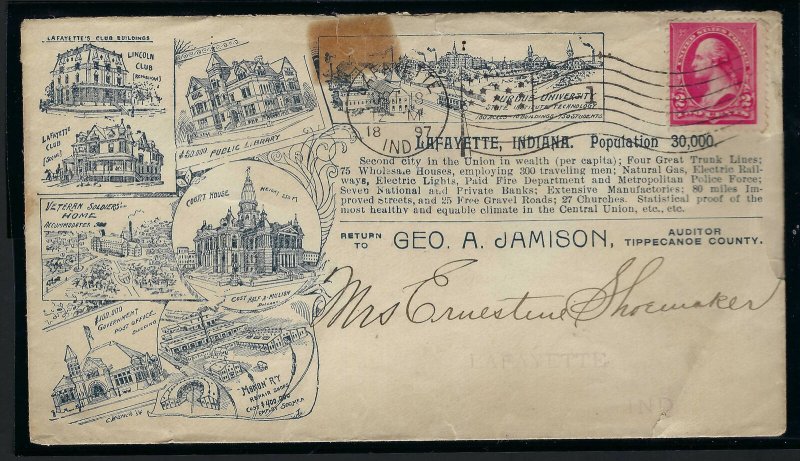 LAFAYETTE'S CLUB BUILDINGS
LINCOLN
CLUB
(REPUBLICAN)
LAFAYETTE
CLUB
(SOCIAL)
$50,000 PUBLIC LIBRARY
VETERAN SOLDIERS'
HOME
COURT HOUSE
COST HALF A MILLION
$100,000
GOVERNMENT
POST OFFICE
BUILDING
MONON R'Y
REPAIR SHOPS
COST $400,000
PURDUE UNIVERSITY
LAFAYETTE
18 97
IND
UNITED STATES POSTAGE
TWO CENTS
LAFAYETTE, INDIANA. Population 30,000.
Second city in the Union in wealth (per capita); Four Great Trunk Lines;
75 Wholesale Houses, employing 300 traveling men; Natural Gas, Electric Rail-
ways, Electric Lights, Paid Fire Department and Metropolitan Police Force;
Seven National and Private Banks; Extensive Manufactories; 80 miles Im-
proved streets, and 25 Free Gravel Roads; 27 Churches. Statistical proof of the
most healthy and equable climate in the Central Union, etc., etc.
RETURN
TO
GEO. A. JAMISON,
AUDITOR
TIPPECANOE COUNTY.
Mrs Ernestine Shoemaker
LAFAYETTE
IND